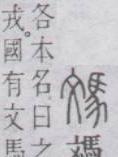 媽
各本名曰之
戎國有文馬